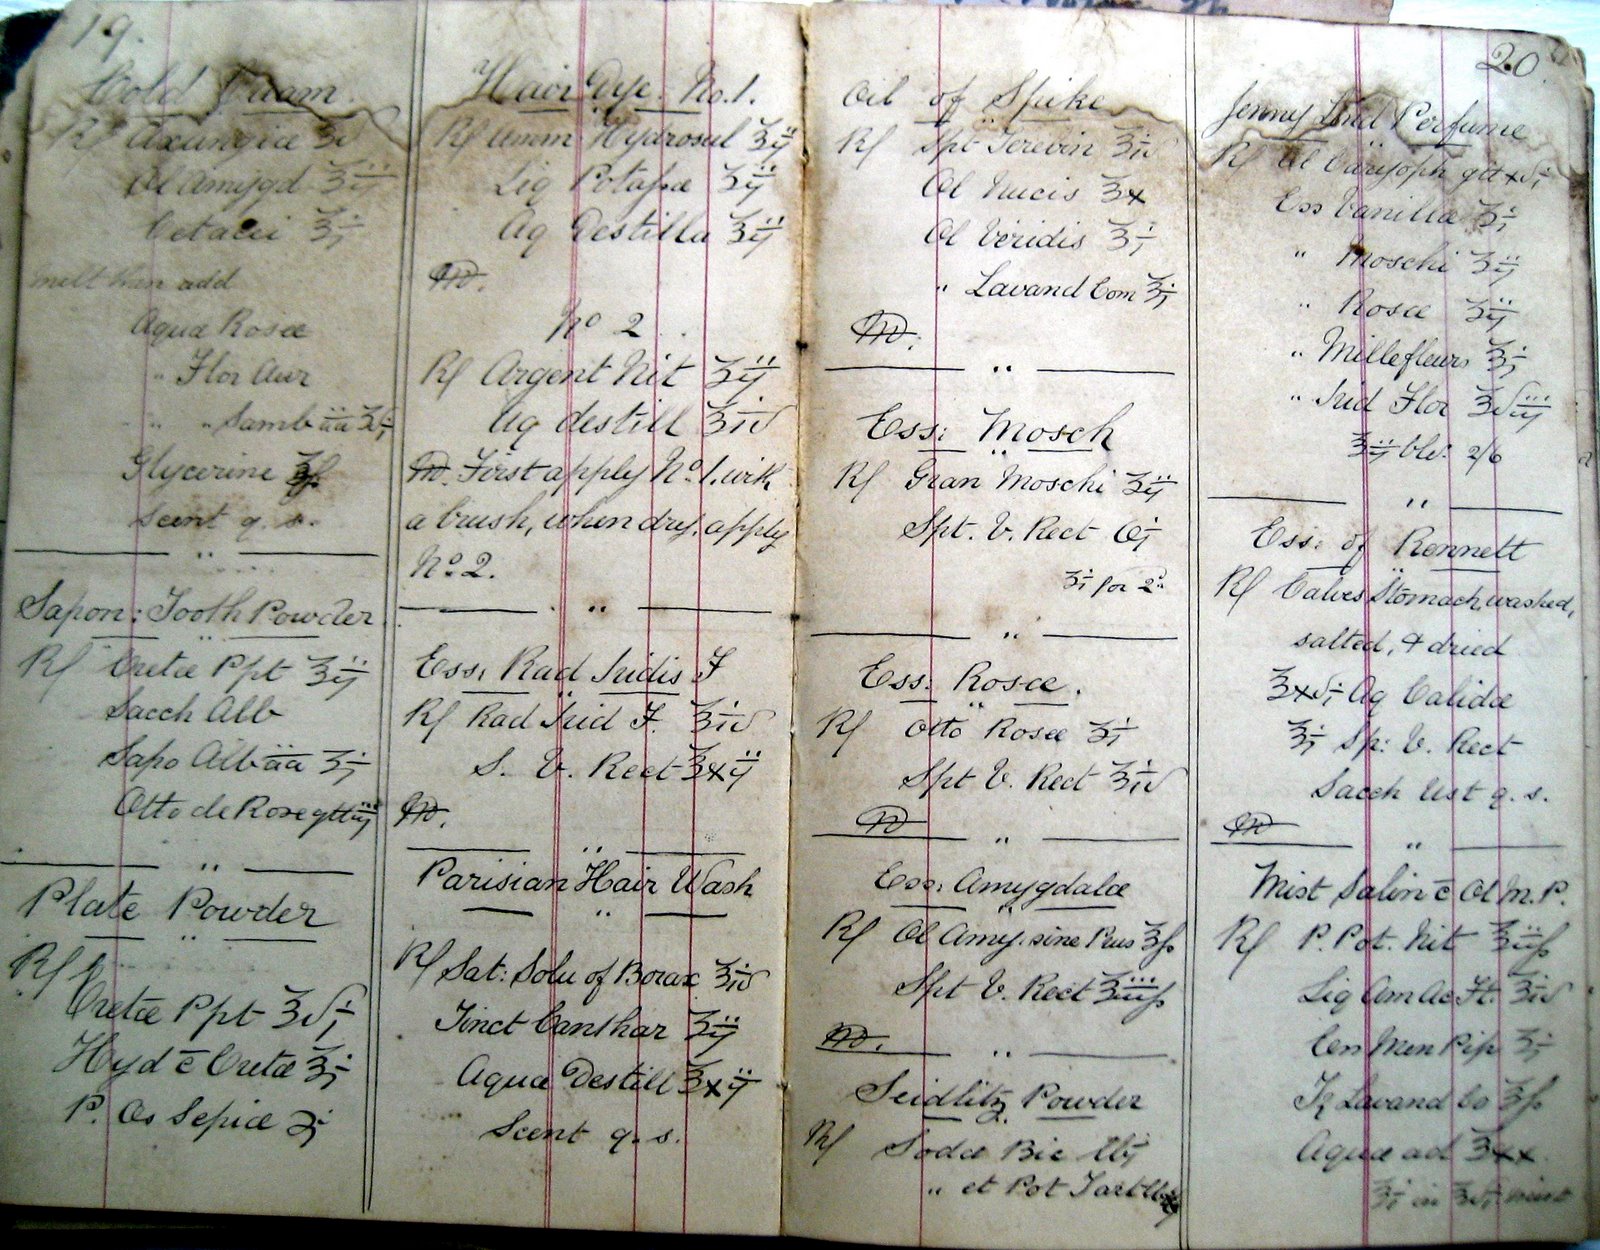 19.
Cold Cream.
Rf Axungiae ʒiv
Ol Amygd ʒij
Cetacei ʒj
melt then add
Aqua Rosae
" Flor Aur
" " Samb āā ʒvj
Glycerine
Scent q. s.
Sapon: Tooth Powder
Rf Cretae Ppt ʒij
Sacch Alb
Sapo Alb āā ʒj
Otto de Rose gtt
Plate Powder
Rf
Cretae Ppt ʒvj
Hyd c̄ Creta ʒj
P. Os Sepiae ʒj
Hair Dye. No. 1.
Rf Amm: Hydrosul ʒij
Liq Potassae ʒij
Aq Destilla ʒij
M.
No 2
Rf Argent Nit ʒij
Aq destill ʒiv
M. First apply No. 1. with
a brush, when dry, apply
No. 2.
Ess: Rad Iridis F
Rf Rad Irid F. ʒiv
S. V. Rect ʒxij
M.
Parisian Hair Wash
Rf Sat: Solu of Borax ʒiv
Tinct Canthar ʒij
Aqua Destill ʒxij
Scent q. s.
Oil of Spike
Rf Spt Terebin ʒiv
Ol Nucis ʒx
Ol Viridis ʒj
" Lavand Com ʒj
M.
Ess: Mosch
Rf Gran Moschi ʒij
Spt. V. Rect Oj
ʒj for 2d.
Ess: Rosae.
Rf Otto Rosae ʒj
Spt V. Rect ʒiv
M
Ess: Amygdalae
Rf Ol Amy. sine Prus ʒſs
Spt V. Rect ʒiijſs
M.
Seidlitz Powder
Rf Sodae Bic lbj
" et Pot Tart
20.
Jenny Lind Perfume
Rf Ol Caryoph gtt xvj
Ess Vanillae ʒj
" Moschi ʒij
" Rosae ʒij
" Millefleurs ʒj
" Irid Flor ʒviij
2/6
Ess: of Rennett
Rf Calves Stomach, washed,
salted, & dried
ʒxvj Aq Calidae
ʒj Sp: V. Rect
Sacch Ust q. s.
M
Mist Salin c̄ Ol M. P.
Rf P. Pot. Nit ʒijſs
Liq Am Ac Ft. ʒiv
Ess Men Pip ʒj
Tr Lavand Co ʒſs
Aqua ad ʒxx